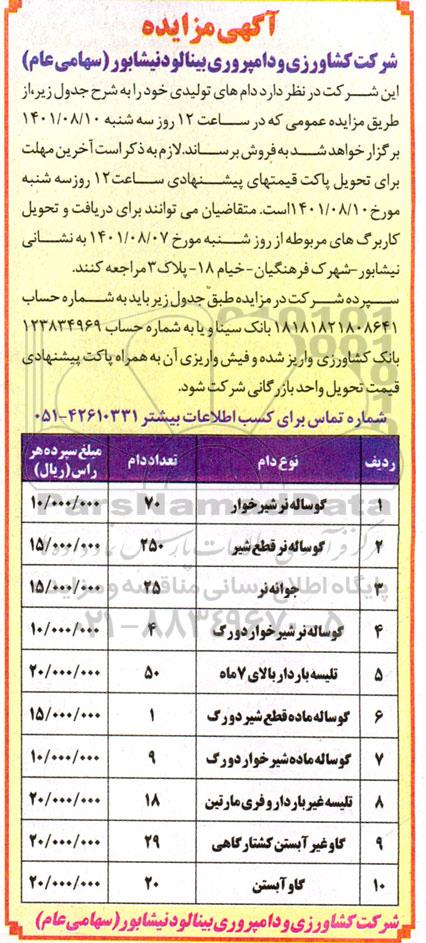 آگهی مزایده
شرکت کشاورزی و دامپروری بینالود نیشابور (سهامی عام)
این شرکت در نظر دارد دام های تولیدی خود را به شرح جدول زیر، از
طریق مزایده عمومی که در ساعت ۱۲ روز سه شنبه ۱۴۰۱/۰۸/۱۰
برگزار خواهد شد به فروش برساند. لازم به ذکر است آخرین مهلت
برای تحویل پاکت قیمتهای پیشنهادی ساعت ۱۲ روز سه شنبه
مورخ ۱۴۰۱/۰۸/۱۰ است. متقاضیان می توانند برای دریافت و تحویل
کاربرگ های مربوطه از روز شنبه مورخ ۱۴۰۱/۰۸/۰۷ به نشانی
نیشابور-شهرک فرهنگیان-خیام ۱۸-پلاک ۳ مراجعه کنند.
سپرده شرکت در مزایده طبق جدول زیر باید به شماره حساب
۱۸۱۸۱۸۲۱۸۰۸۶۴۱ بانک سینا و یا به شماره حساب ۱۲۳۸۳۴۹۶۹
بانک کشاورزی واریز شده و فیش واریزی آن به همراه پاکت پیشنهادی
قیمت تحویل واحد بازرگانی شرکت شود.
شماره تماس برای کسب اطلاعات بیشتر ۴۲۶۱۰۳۳۱-۰۵۱
ردیف نوع دام تعداد دام مبلغ سپرده هر راس (ریال)
۱ گوساله نر شیرخوار ۷۰ ۱۰/۰۰۰/۰۰۰
۲ گوساله نر قطع شیر ۲۵۰ ۱۵/۰۰۰/۰۰۰
۳ جوانه نر ۲۵ ۱۵/۰۰۰/۰۰۰
۴ گوساله نر شیرخوار دورگ ۴ ۱۰/۰۰۰/۰۰۰
۵ تلیسه باردار بالای ۷ ماه ۵۰ ۲۰/۰۰۰/۰۰۰
۶ گوساله ماده قطع شیر دورگ ۱ ۱۵/۰۰۰/۰۰۰
۷ گوساله ماده شیرخوار دورگ ۹ ۱۰/۰۰۰/۰۰۰
۸ تلیسه غیر باردار و فری مارتین ۱۸ ۲۰/۰۰۰/۰۰۰
۹ گاو غیر آبستن کشتارگاهی ۲۹ ۲۰/۰۰۰/۰۰۰
۱۰ گاو آبستن ۲۰ ۲۰/۰۰۰/۰۰۰
شرکت کشاورزی و دامپروری بینالود نیشابور (سهامی عام)
ParsNamadData
پایگاه اطلاع رسانی مناقصه و مزایده
۰۲۱-۸۸۳۴۹۶۷۰-۵